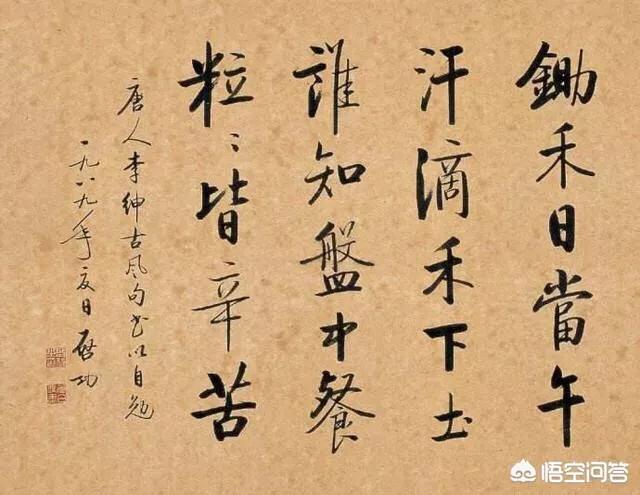 鋤禾日當午
汗滴禾下土
誰知盤中餐
粒〻皆辛苦
唐人李紳古風句書以自勉
一九八九年夏日 啟功
悟空问答